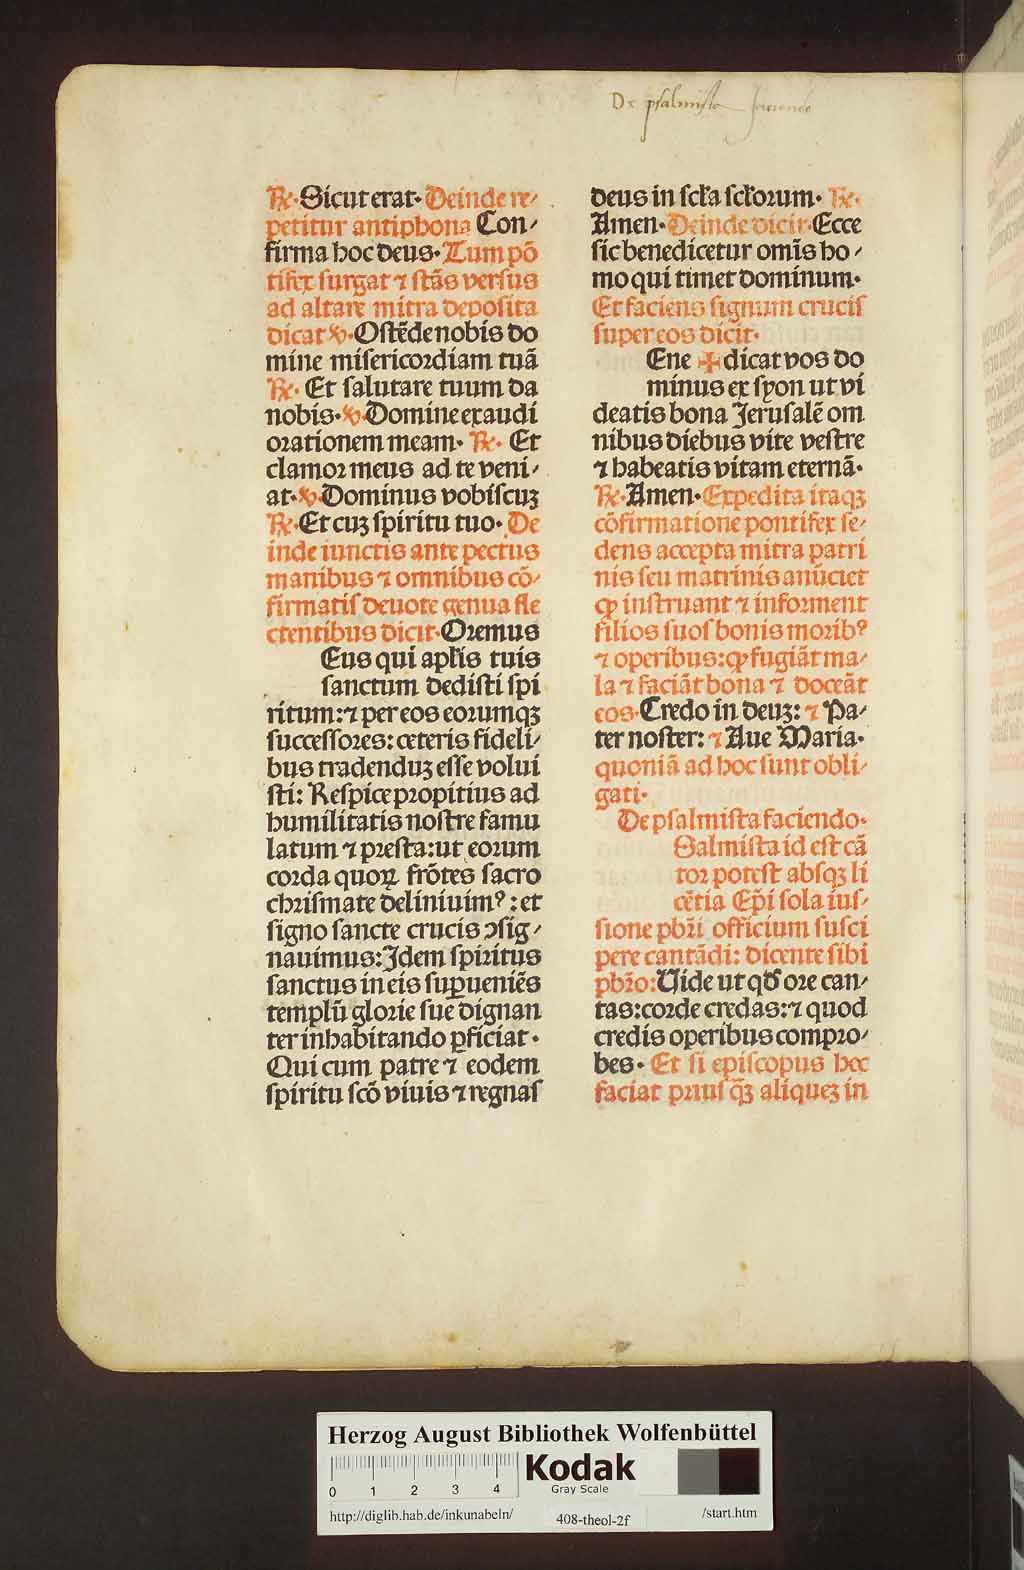 De psalmista
℞. Sicut erat. Deinde re⸗
petitur antiphona Con⸗
firma hoc deus. Tum põ
tifex surgat ⁊ stãs versus
ad altare mitra deposita
dicat ℣. Ostẽde nobis do
mine misericordiam tuã
℞. Et salutare tuum da
nobis. ℣. Domine exaudi
orationem meam. ℞. Et
clamor meus ad te veni⸗
at. ℣. Dominus vobiscuꝫ
℞. Et cuꝫ spiritu tuo. De
inde iunctis ante pectus
manibus ⁊ omnibus cõ⸗
firmatis deuote genua fle
ctentibus dicit. Oremus
Eus qui apłis tuis
sanctum dedisti spi
ritum: ⁊ per eos eorumqꝫ
successores: ceteris fideli⸗
bus tradenduꝫ esse volui
sti: Respice propitius ad
humilitatis nostre famu
latum ⁊ presta: ut eorum
corda quoꝝ frõtes sacro
chrismate deliniuimꝰ: et
signo sancte crucis ↄsig⸗
nauimus: Idem spiritus
sanctus in eis suꝑueniẽs
templũ glorie sue dignan
ter inhabitando ꝑficiat.
Qui cum patre ⁊ eodem
spiritu scõ viuis ⁊ regnas
deus in scła scłorum. ℞.
Amen. Deinde dicit. Ecce
sic benedicetur omĩs ho⸗
mo qui timet dominum.
Et faciens signum crucis
super eos dicit.
Ene ✠ dicat vos do
minus ex syon ut vi
deatis bona Jerusalẽ om
nibus diebus vite vestre
⁊ habeatis vitam eternã.
℞. Amen. Expedita itaqꝫ
cõfirmatione pontifex se⸗
dens accepta mitra patri
nis seu matrinis anũciet
ꝙ instruant ⁊ informent
filios suos bonis moribꝰ
⁊ operibus: ꝙ fugiãt ma⸗
la ⁊ faciãt bona ⁊ doceãt
eos. Credo in deuꝫ: ⁊ Pa⸗
ter noster: ⁊ Aue Maria.
quoniã ad hoc sunt obli⸗
gati.
De psalmista faciendo.
Salmista id est cã
tor potest absqꝫ li
cẽtia Epĩ sola ius⸗
sione pbři officium susci
pere cantãdi: dicente sibi
pbřo: Uide ut qđ ore can⸗
tas: corde credas: ⁊ quod
credis operibus compro⸗
bes. Et si episcopus hec
faciat prius q̃ꝫ aliqueꝫ in
Herzog August Bibliothek Wolfenbüttel
0 1 2 3 4
Kodak
Gray Scale
http://diglib.hab.de/inkunabeln/ 408-theol-2f /start.htm